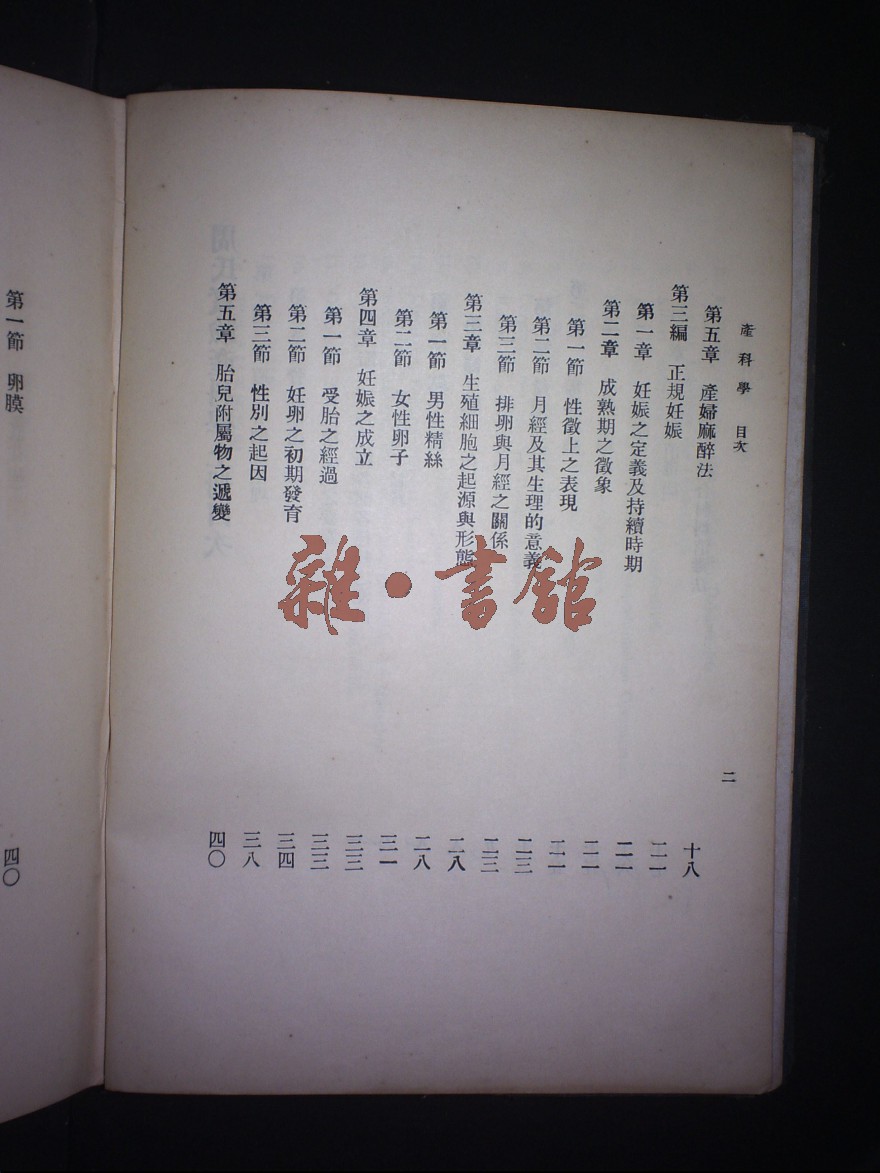 產科學 目次
二
第五章 產婦麻醉法 十八
第三編 正規妊娠 二一
第一章 妊娠之定義及持續時期 二一
第二章 成熟期之徵象 二一
第一節 性徵上之表現 二一
第二節 月經及其生理的意義 二三
第三節 排卵與月經之關係 二三
第三章 生殖細胞之起源與形態 二八
第一節 男性精絲 二八
第二節 女性卵子 三一
第四章 妊娠之成立 三三
第一節 受胎之經過 三三
第二節 妊卵之初期發育 三四
第三節 性別之起因 三八
第五章 胎兒附屬物之遞變 四〇
第一節 卵膜 四〇
雜·書館